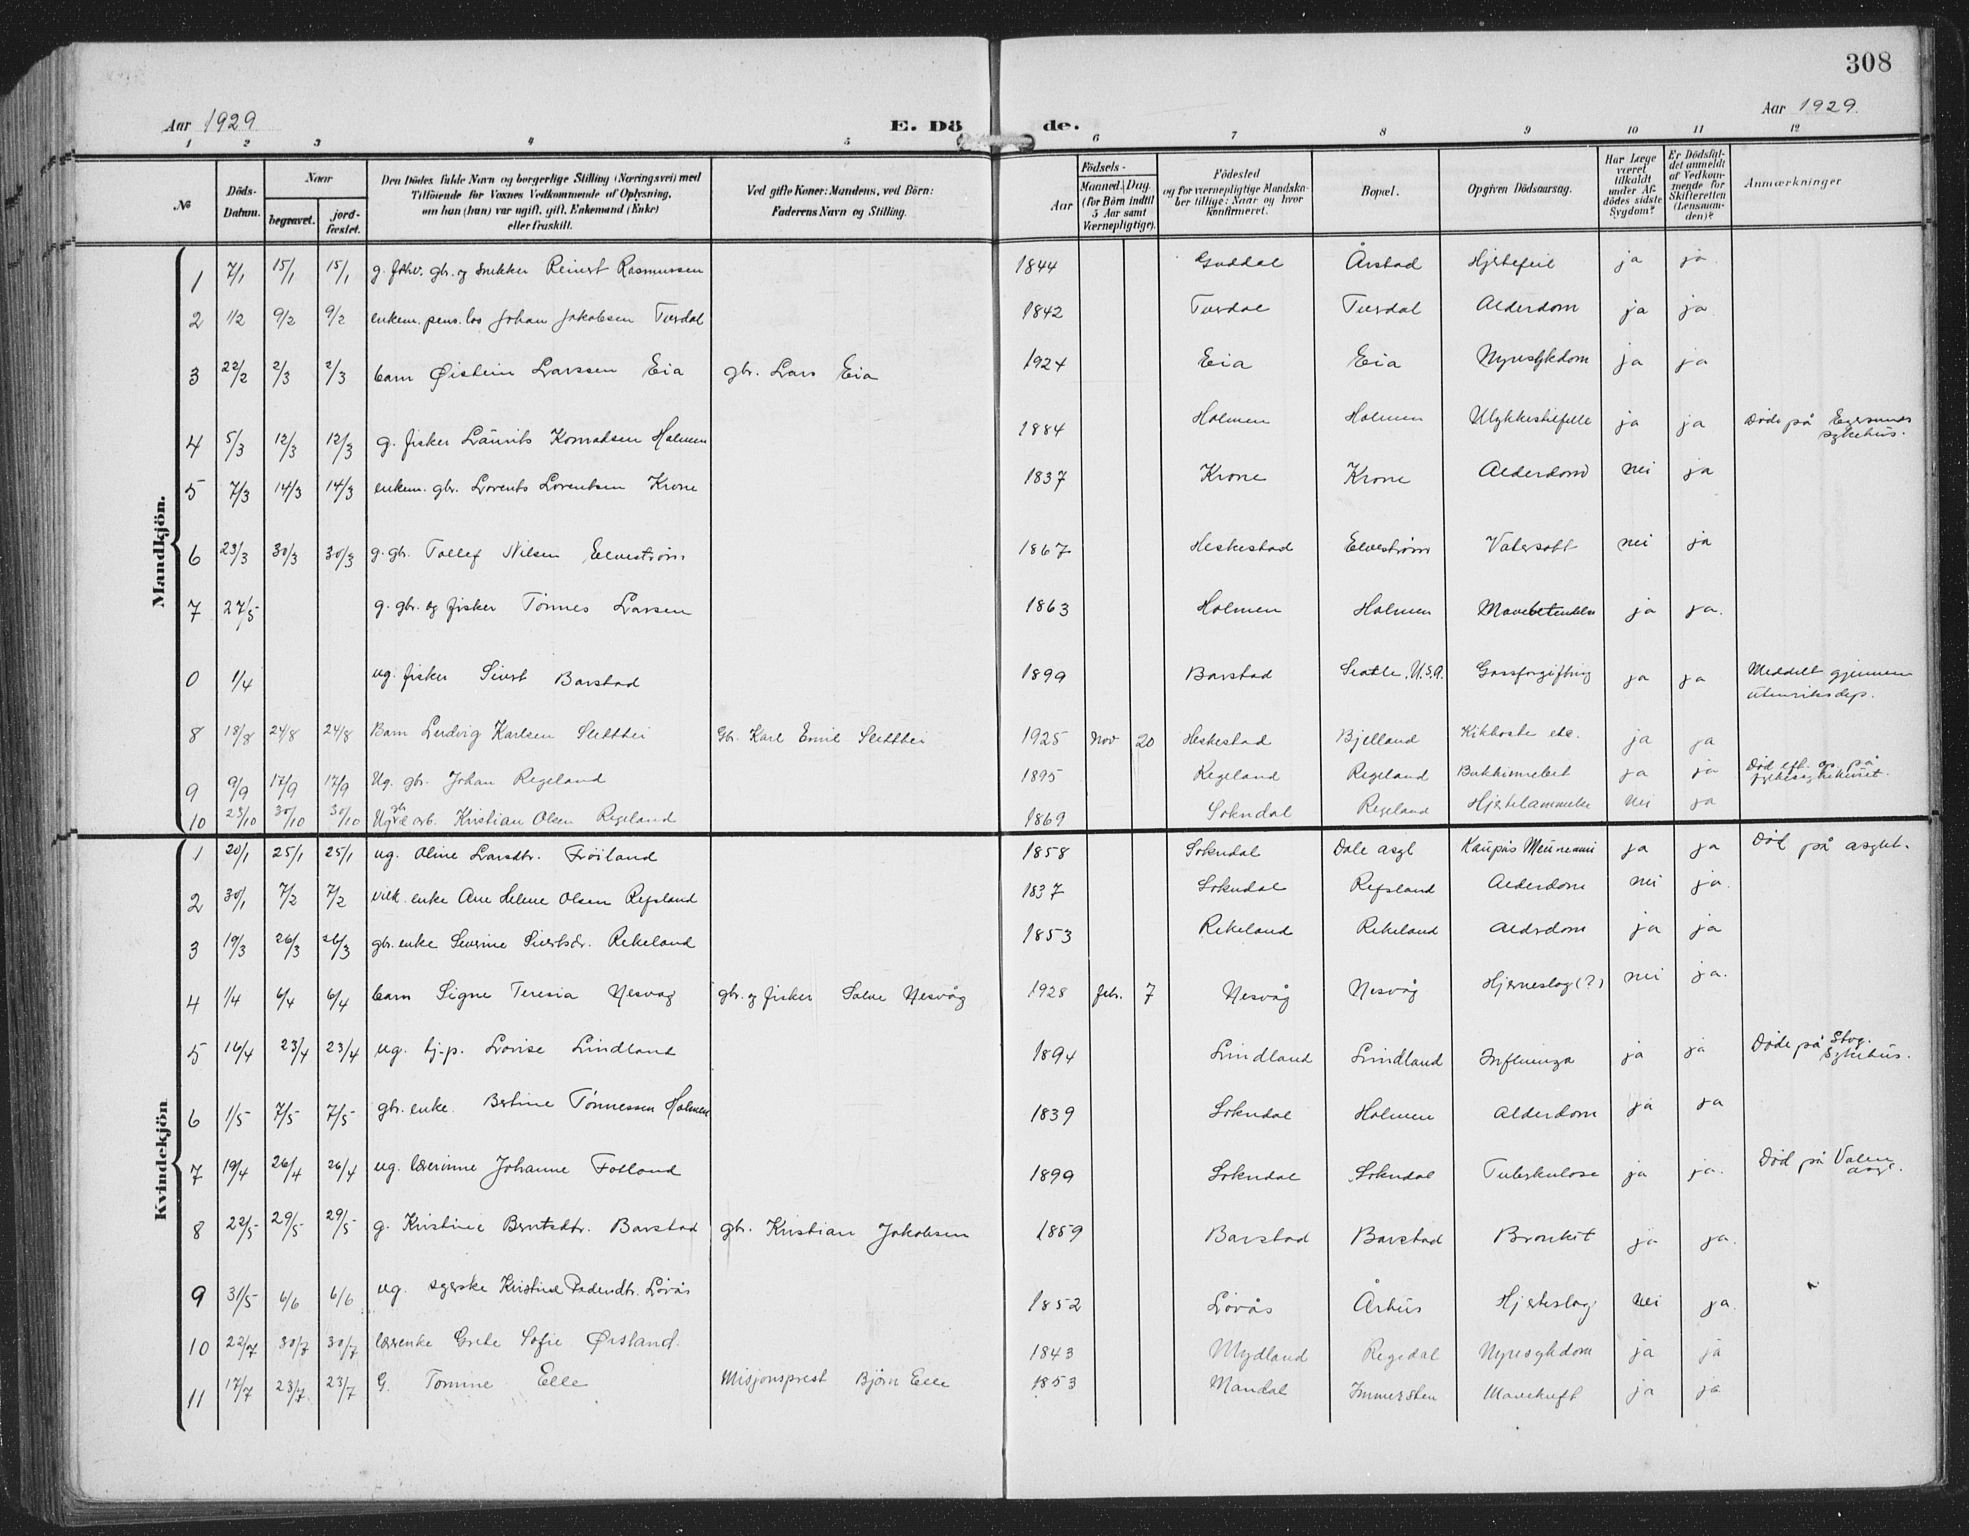 308
Aar 1929 E. Dö de. Aar 1929.
1 2 3 4 5 6 7 8 9 10 11 12
№ Döds-Datum. Naar begravet. jord-fæstet. Den Dödes fulde Navn og borgerlige Stilling (Næringsvei) med Tilföiende for Voxnes Vedkommende af Oplysning, om han (hun) var ugift, gift, Enkemand (Enke) eller fraskilt. Ved gifte Koner: Mandens, ved Börn: Faderens Navn og Stilling. Födsels- Aar Maaned. Dag. (for Börn indtil 5 Aar samt Værnepligtige). Födested og for værnepligtige Mandska-ber tillige: Naar og hvor konfirmeret. Bopæl. Opgiven Dödsaarsag. Har Læge været tilkaldt under Af-dödes sidste Sygdom? Er Dödsfal-det anmeldt af Vedkom-mende for Skifteretten (Lensman-den)? Anmærkninger
Mandkjön.
1 7/1 15/1 15/1 g. forhv. gbr. og snekker Reinert Rasmussen 1844 Guddal Årstad Hjertefeil ja ja
2 1/2 9/2 9/2 enkem. pens. los Johan Jakobsen Tuesdal 1842 Tuesdal Tuesdal Alderdom ja ja
3 22/2 2/3 2/3 barn Øistein Larssen Eia gbr. Lars Eia 1924 Eia Eia Nyresykdom ja ja
4 5/3 12/3 12/3 g. fisker Laurits Konradsen Holmen 1884 Holmen Holmen Ulykkestilfelle ja ja Døde på Egersunds sykehus.
5 7/3 14/3 14/3 enkem. gbr. Lorents Lorentsen Krone 1837 Krone Krone Alderdom nei ja
6 23/3 30/3 30/3 g. gbr. Tollef Nilsen Elvestrøm 1867 Heskestad Elvestrøm Vatersott nei ja
7 27/5 g. gbr. og fisker Tønnes Larsen 1863 Holmen Holmen Mavebetendelse ja ja.
0 1/4 ug. fisker Sivert Barstad 1899 Barstad Seatle, U.S.A. Gassforgiftning ja ja Meddelt gjennem utenriksdep.
8 18/8 24/8 24/8 Barn Ludvig Karlsen Sletthei Gb. Karl Emil Sletthei 1925 Nov 20 Heskestad Bjelland Kikhoste etc. ja ja
9 9/9 17/9 17/9 Ug. gbr. Johan Regeland 1895 Regeland Regeland Bukhinnebet ja ja Død eft. op. på
10 23/10 30/10 30/10 Kristian Olsen Regeland 1869 Sokndal Regeland Hjertelammelse nei ja
Kvindekjön
1 20/1 25/1 25/1 ug. Oline Larsdtr. Frøiland 1858 Sokndal Dale asyl ja ja Død på asylet.
2 30/1 7/2 7/2 enke Ane Helene Olsen Refsland 1837 Sokndal Refsland Alderdom nei ja.
3 19/3 26/3 26/3 gbr. enke Severine Sivertsdr. Rekeland 1853 Rekeland Rekeland Alderdom ja ja
4 1/4 6/4 6/4 barn Signe Teresia Nesvåg gbr. og fisker Salve Nesvåg 1928 febr. 7 Nesvåg Nesvåg Hjerneslag (?) nei ja.
5 16/4 23/4 23/4 ug. hj.p. Lovise Lindland 1894 Lindland Lindland Influenza ja ja Døde på Stvg. Sykehus.
6 1/5 7/5 7/5 gbr. enke. Bertine Tønnessen Holmen 1839 Sokndal Holmen Alderdom ja ja
7 19/4 26/4 26/4 ug. lærerinne Johanne Folland 1899 Sokndal Sokndal Tuberkulose ja ja. Død på Valen asyl.
8 22/5 29/5 29/5 g. Kristine Berntsdtr. Barstad gbr. Kristian Jakobsen 1859 Barstad Barstad Bronkit ja ja.
9 31/5 6/6 6/6 ug. syerske Kristine Pedersdtr. Løvås 1852 Løvås Århus Hjerteslag nei ja.
10 22/7 30/7 30/7 lærerenke Grete Sofie Ørsland. 1843 Mydland Regedal Nyresykdom ja ja
11 17/7 23/7 23/7 G. Tomine Elle Misjonsprest Bjørn Elle 1853 Mandal Immersten Mavekreft ja ja